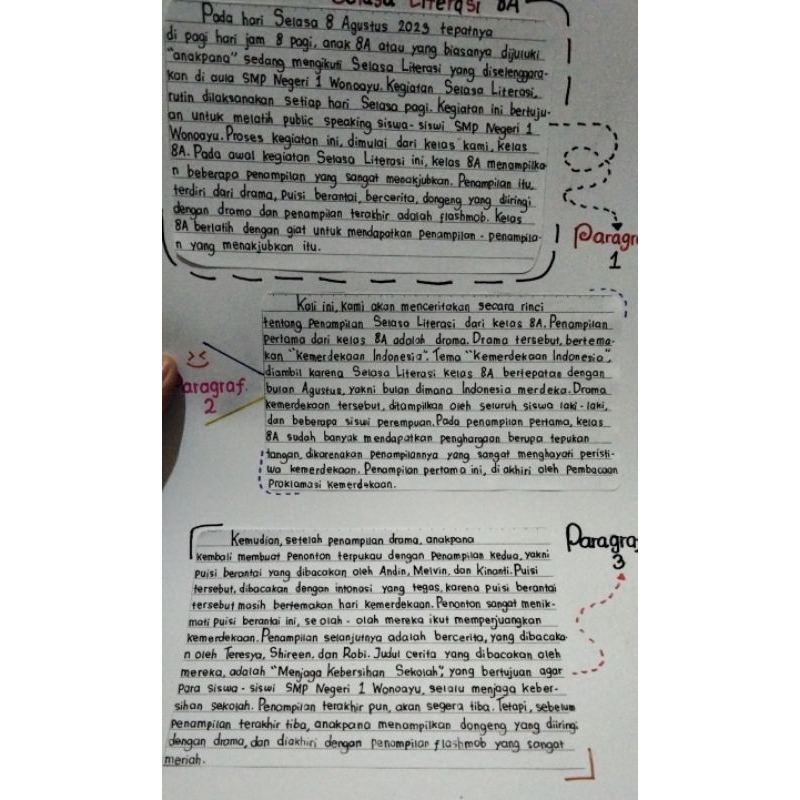 Selasa Literasi 8A
Pada hari Selasa 8 Agustus 2023 tepatnya
di pagi hari jam 8 pagi, anak 8A atau yang biasanya dijuluki
"anakpana" sedang mengikuti Selasa Literasi yang diselenggara-
kan di aula SMP Negeri 1 Wonoayu. Kegiatan Selasa Literasi,
rutin dilaksanakan setiap hari Selasa pagi. Kegiatan ini bertuju-
an untuk melatih public speaking siswa-siswi SMP Negeri 1
Wonoayu. Proses kegiatan ini, dimulai dari kelas kami, kelas
8A. Pada awal kegiatan Selasa Literasi ini, kelas 8A menampilka-
n beberapa penampilan yang sangat menakjubkan. Penampilan itu,
terdiri dari drama, puisi berantai, bercerita, dongeng yang diiringi
dengan drama dan penampilan terakhir adalah flashmob. Kelas
8A berlatih dengan giat untuk mendapatkan penampilan-penampila-
n yang menakjubkan itu.
Paragr
1
Kali ini, kami akan menceritakan secara rinci
tentang Penampilan Selasa Literasi dari kelas 8A. Penampilan
pertama dari kelas 8A adalah drama. Drama tersebut, bertema-
kan "Kemerdekaan Indonesia". Tema "Kemerdekaan Indonesia",
diambil karena Selasa Literasi kelas 8A bertepatan dengan
bulan Agustus, yakni bulan dimana Indonesia merdeka. Drama
kemerdekaan tersebut, ditampilkan oleh seluruh siswa laki-laki,
dan beberapa siswi perempuan. Pada penampilan pertama, kelas
8A sudah banyak mendapatkan penghargaan berupa tepukan
tangan, dikarenakan penampilannya yang sangat menghayati peristi-
wa kemerdekaan. Penampilan pertama ini, di akhiri oleh Pembacaan
Proklamasi Kemerdekaan.
aragraf
2
Kemudian, setelah penampilan drama, anakpana
kembali membuat Penonton terpukau dengan Penampilan kedua, yakni
puisi berantai yang dibacakan oleh Andin, Melvin, dan Kinanti. Puisi
tersebut, dibacakan dengan intonasi yang tegas, karena puisi berantai
tersebut masih bertemakan hari kemerdekaan. Penonton sangat menik-
mati puisi berantai ini, seolah-olah mereka ikut memperjuangkan
kemerdekaan. Penampilan selanjutnya adalah bercerita, yang dibacaka-
n oleh Teresya, Shireen, dan Robi. Judul cerita yang dibacakan oleh
mereka, adalah "Menjaga Kebersihan Sekolah", yang bertujuan agar
Para siswa-siswi SMP Negeri 1 Wonoayu, selalu menjaga keber-
sihan sekolah. Penampilan terakhir pun, akan segera tiba. Tetapi, sebelum
Penampilan terakhir tiba, anakpana menampilkan dongeng yang diiringi
dengan drama, dan diakhiri dengan penampilan flashmob yang sangat
meriah.
Paragra
3